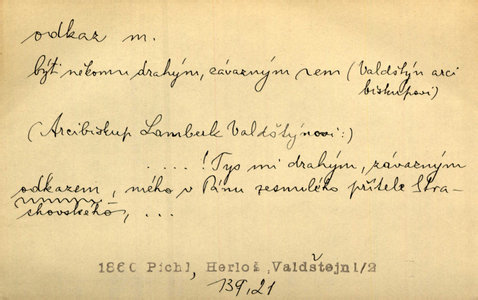 odkaz m.
býti někomu drahým, závazným zem (Valdštýn arci
biskupovi)
(Arcibiskup Lambuk Valdštýnovi:)
. . . . ! Tys mi drahým, závazným
odkazem, mého v Pánu zesnulého přítele Stra-
chovského, . . .
1860 Pichl, Herloš, Valdštejn 1/2
139,21